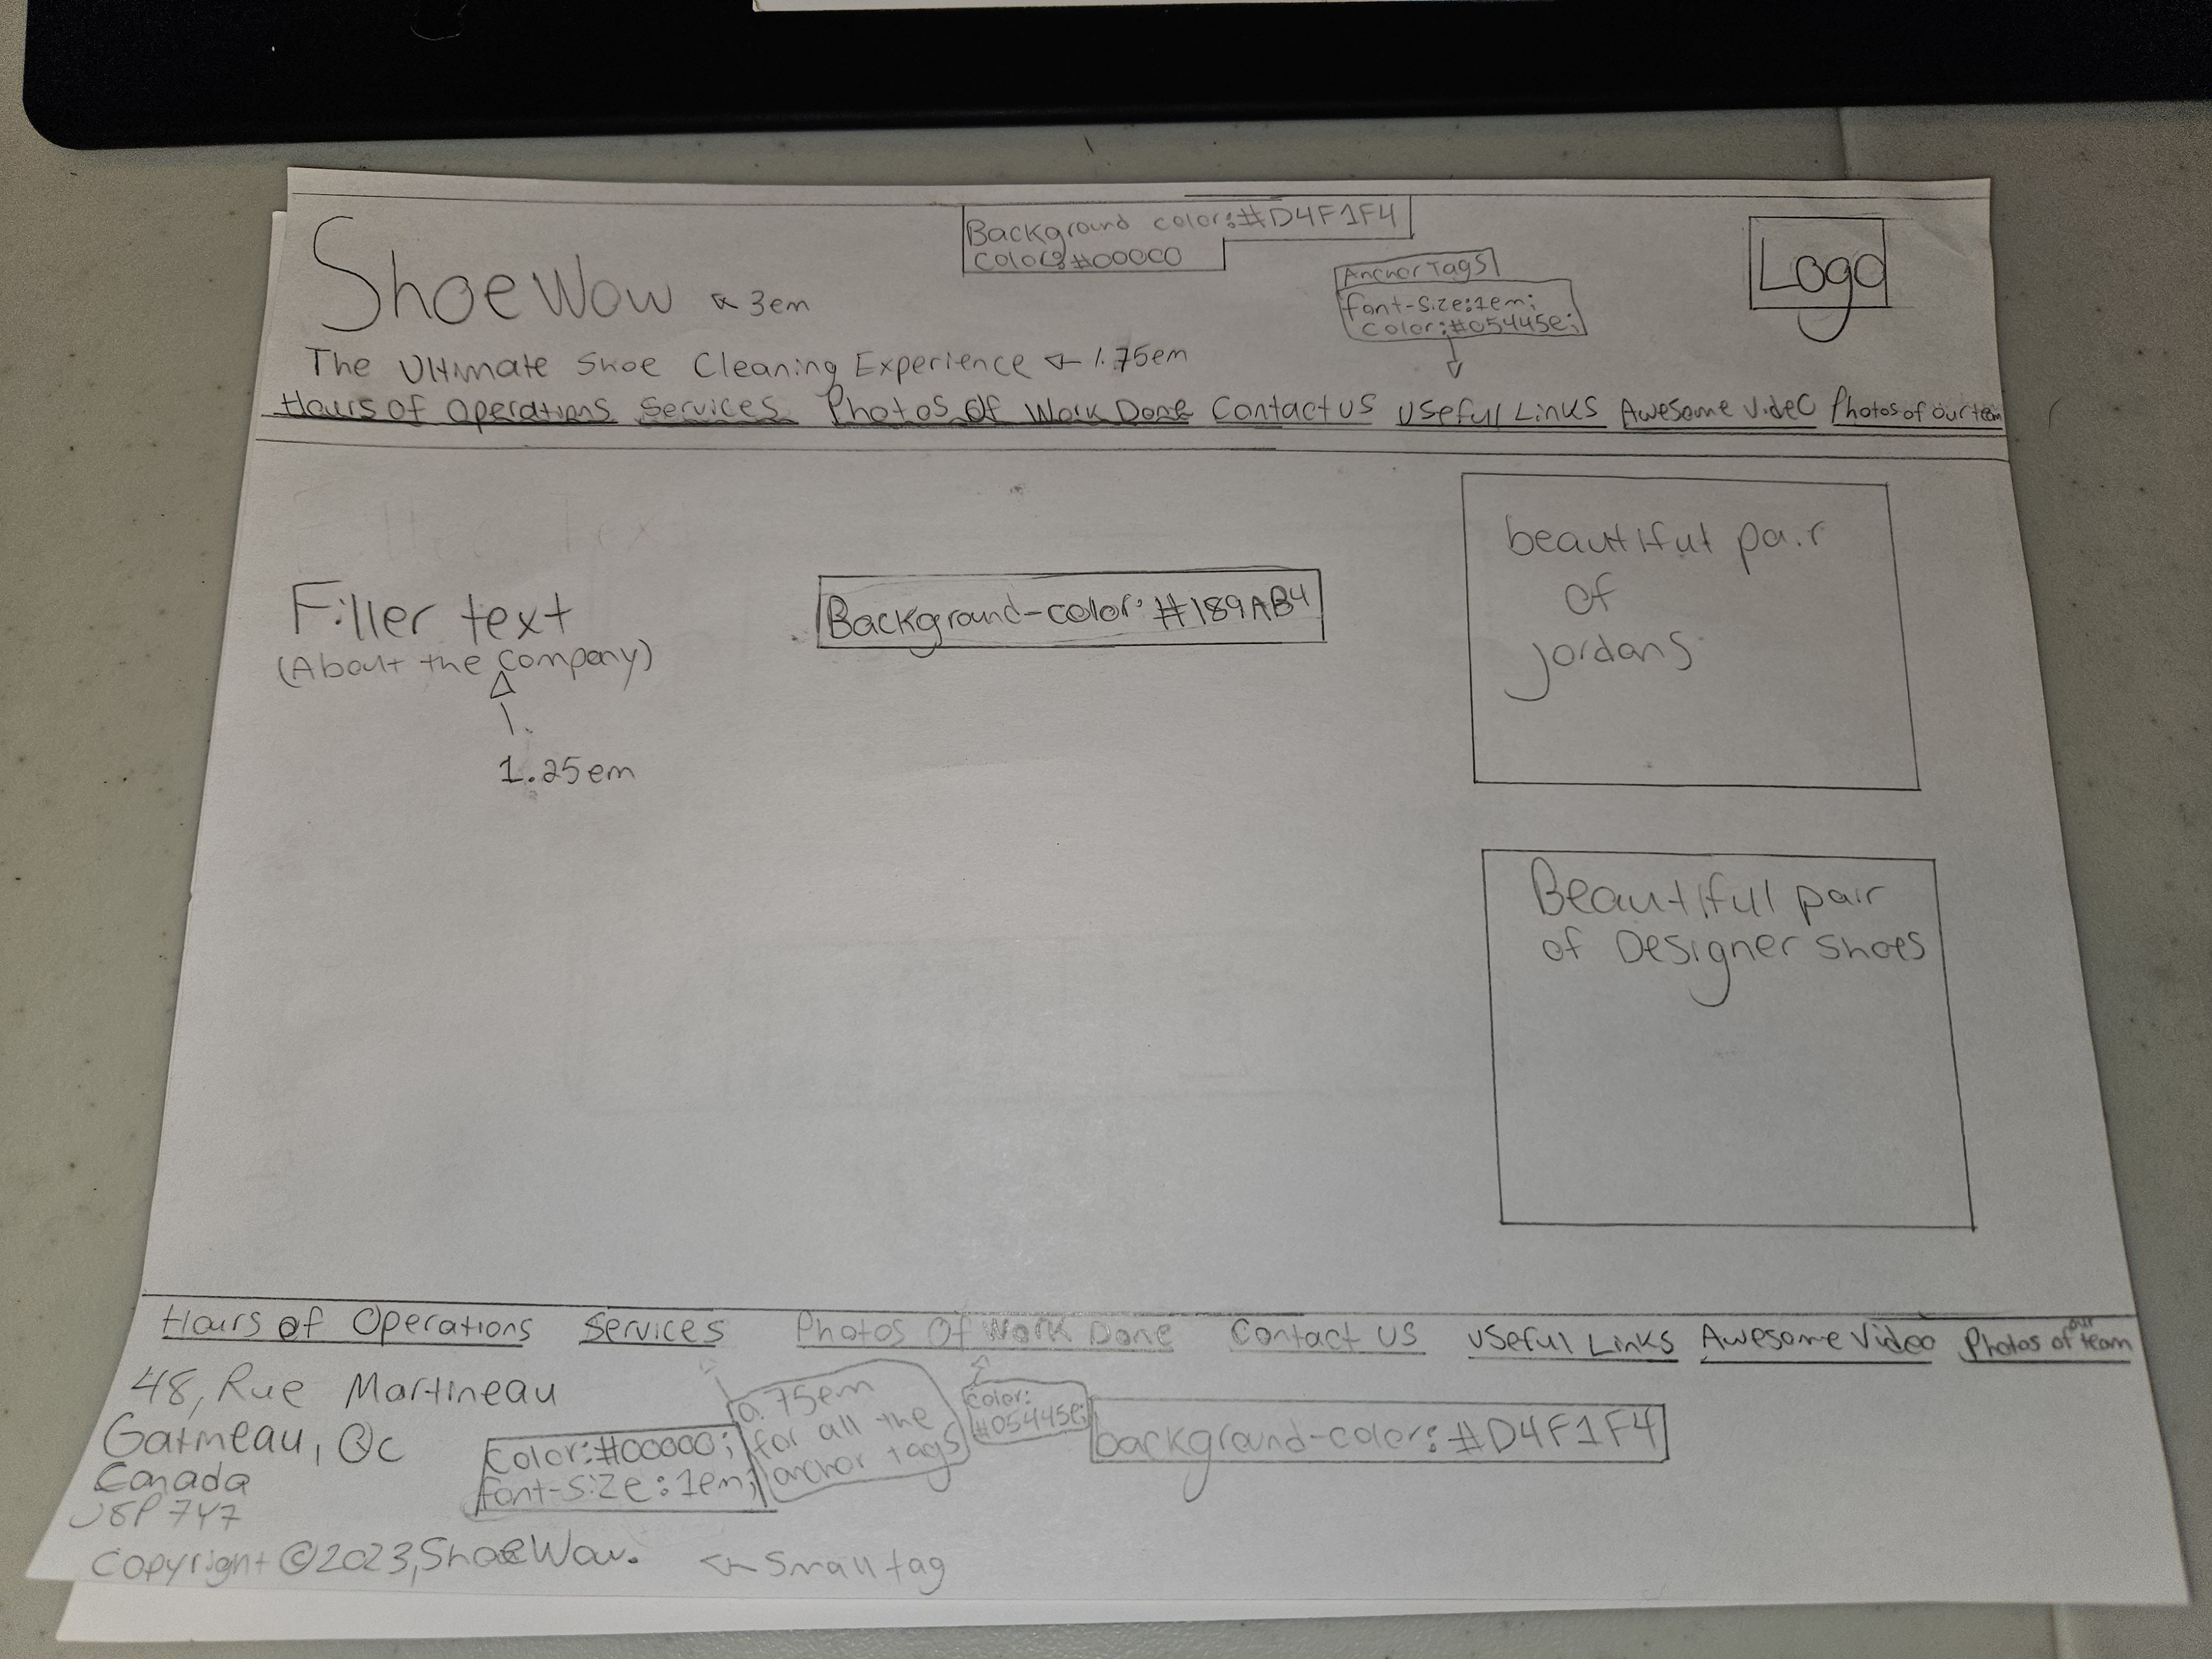 Background color:#D4F1F4
color:#00000
Logo
Shoe Wow 3em
Anchor Tags
font-size:1em;
color:#05445e;
The Ultimate Shoe Cleaning Experience 1.75em
Hours Of Operations Services Photos Of Work Done Contact US Useful Links Awesome Video Photos of our team
beautiful pair
of
jordans
Filler text
(About the company)
1.25em
Background-color:#189AB4
Beautiful pair
of Designer shoes
Hours of Operations Services Photos Of Work Done Contact US Useful Links Awesome Video Photos of our team
48, Rue Martineau
Gatineau, Qc
Canada
J8P 7Y7
Color:#00000;
font-size:1em;
0.75em
for all the
anchor tags
color:
#05445e;
background-color:#D4F1F4
Copyright ©2023, ShoeWow.
Small tag